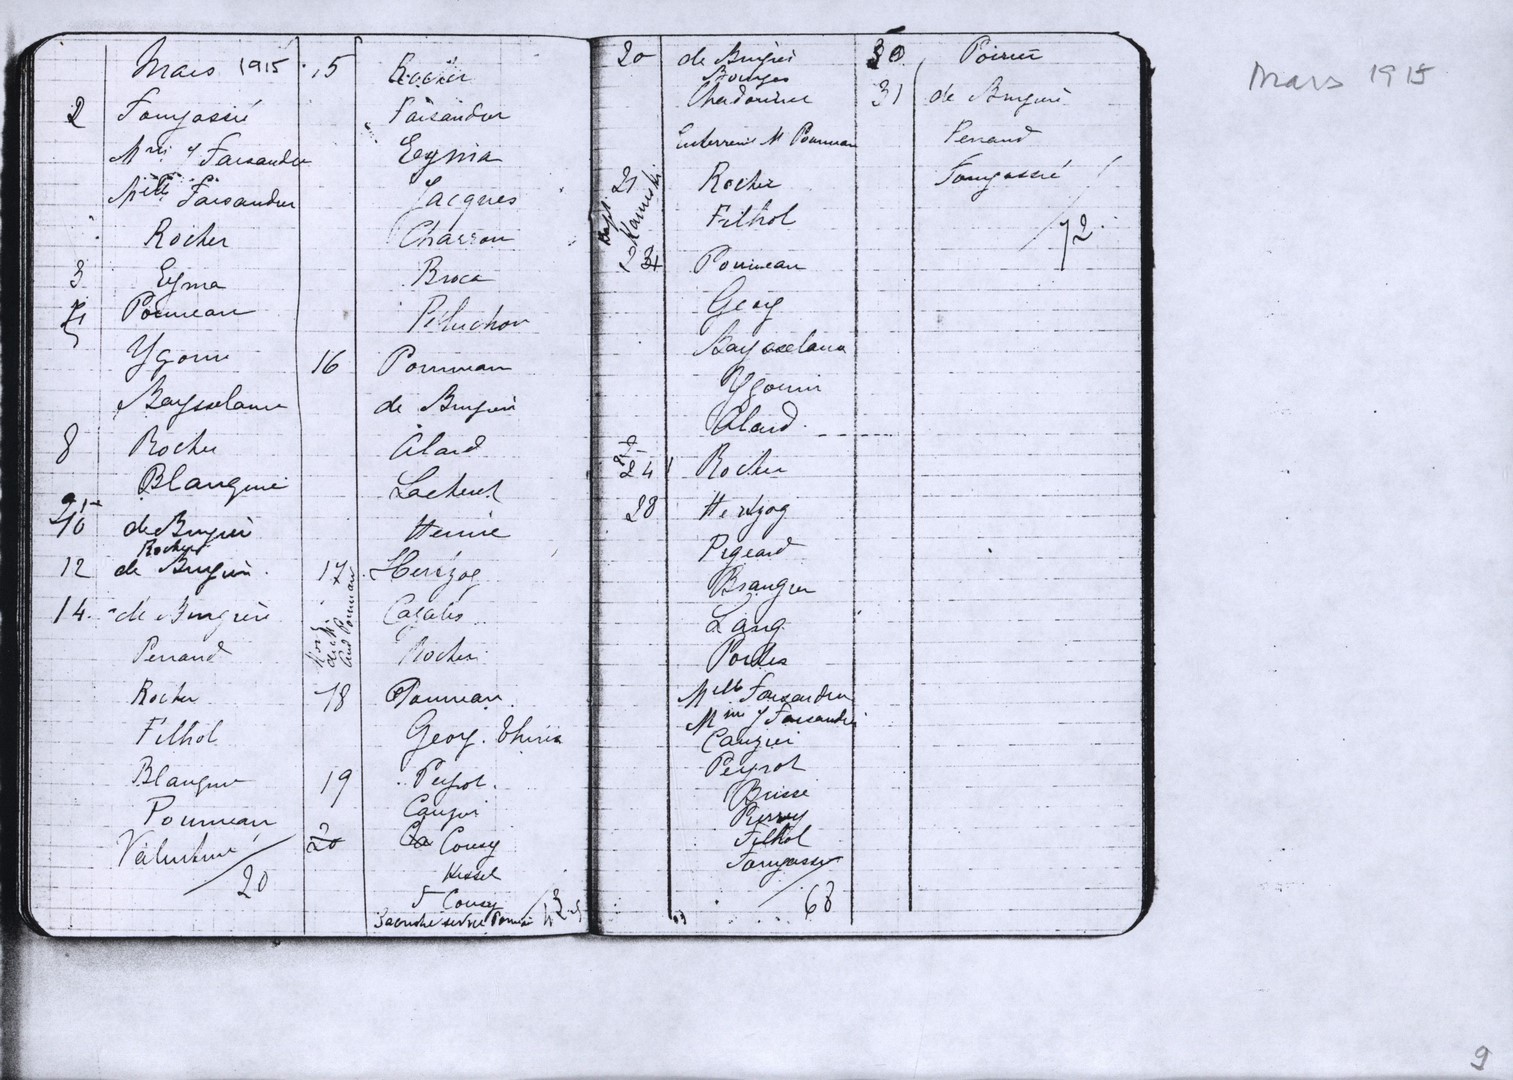 Mars 1915
2 Fougassié
Mme J Faisandier
Mlle Faisandier
Rocher
3 Eyma
Poumeau
Ygouin
Baysselance
8 Rocher
Blanguié
10 de Brugière
Rocher
12 de Brugière
14. de Brugière
Perraud
Rocher
Filhol
Blanguié
Poumeau
Valentine
20
15 Rocher
Faisandier
Eyma
Jacques
Charron
Broca
Péluchon
16 Poumeau
de Brugière
Alard
Lacherel
17 Herizog
Cazalis
Rocher
18 Poumeau
Georg.
19 Peyrot.
Cauzier
20 Courcy
Kissel
20 de Brugière
Bourges
Enterrement M Poumeau
21 Rocher
Filhol
Poumeau
Georg
Baysselance
Ygouin
Alard.
24 Rocher
28 Hertzog
Pigeard
Brangier
Lang
Mlle Faisandier
Mme J Faisandier
Cauzier
Peyrot
Brisse
Filhol
Fougassié
68
30 Poirier
31 de Brugière
Perraud
Fougassié
72.
Mars 1915
9